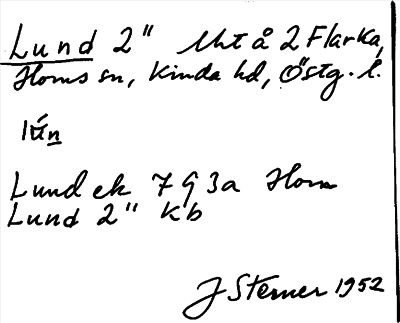 Lund 2" Uht å 2 Flarka,
Horns sn, Kinda hd, Östg. l.
lún
Lund ek 7 G 3a Horn
Lund 2" Kb
J Sterner 1952